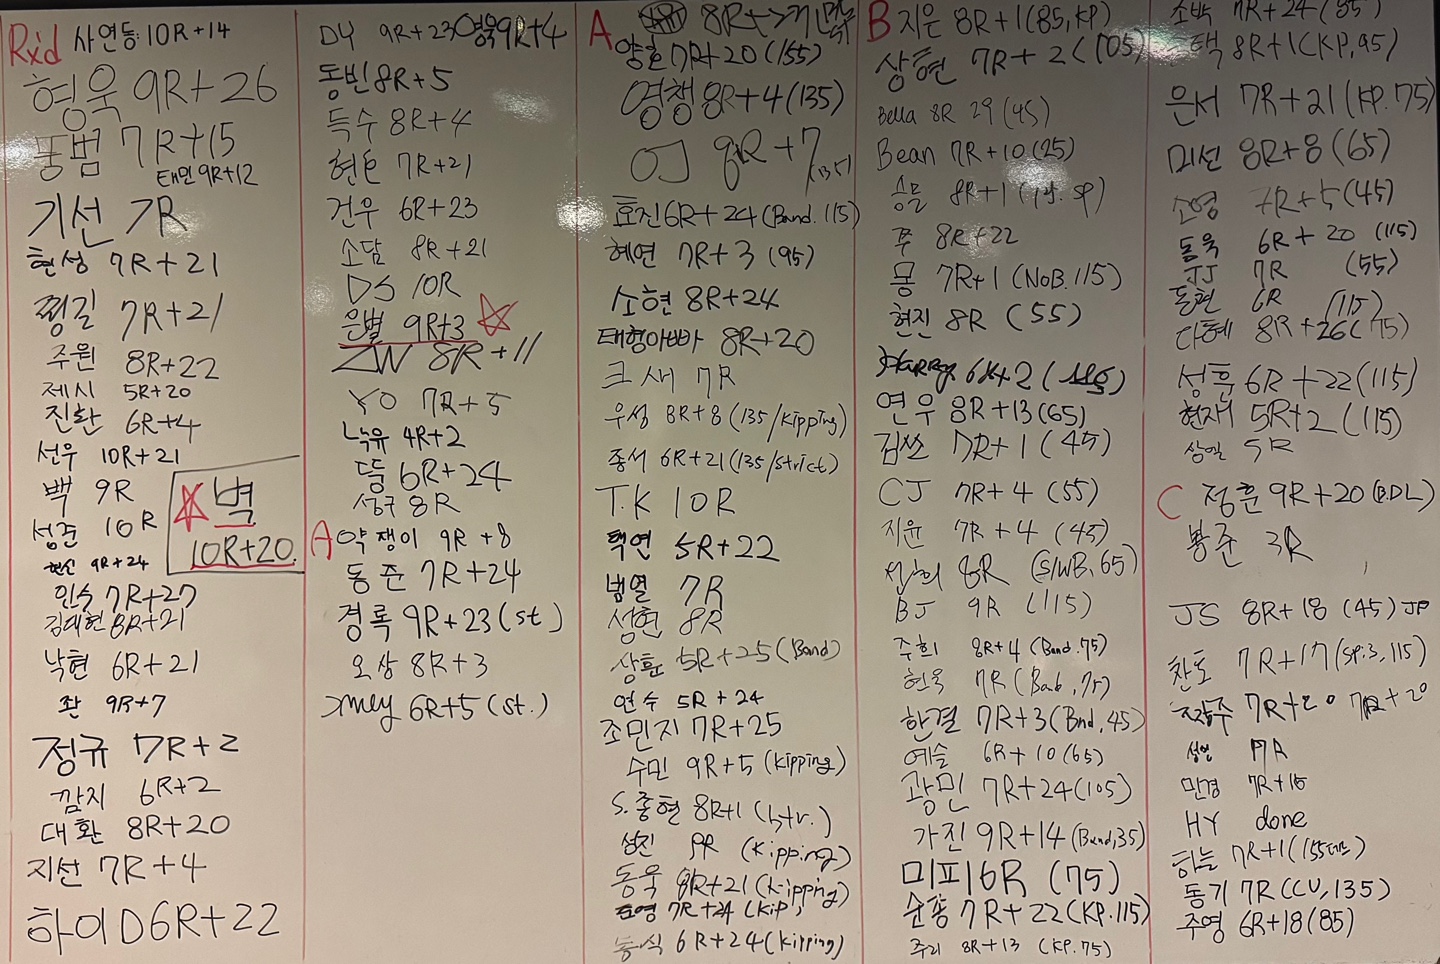 Rx'd 사연동 10R+14
형욱 9R+26
동범 7R+15
태민 9R+12
기선 7R
현성 7R+21
찡길 7R+21
주원 8R+22
제시 5R+20
진환 6R+4
선우 10R+21
백 9R
성준 10R
별
10R+20.
현신 9R+24
민수 7R+27
김대현 8R+21
낙현 6R+21
좐 9R+7
정규 7R+2
깜지 6R+2
대환 8R+20
지선 7R+4
하이D 6R+22
DY 9R+23 영욱 9R+4
동빈 8R+5
득수 8R+4
현호 7R+21
건우 6R+23
소담 8R+21
DS 10R
은별 9R+3
ZW 8R+11
YO 7R+5
녹유 4R+2
뜸 6R+24
성규 8R
A 약쟁이 9R+8
동준 7R+24
경록 9R+23 (st)
오상 8R+3
6R+5 (st.)
A 8R+
양호 7R+20 (155)
영챙 8R+4 (135)
OJ 9R+7 (135)
효진 6R+24 (Band. 115)
혜연 7R+3 (95)
소현 8R+24
태형아빠 8R+20
크새 7R
우성 8R+8 (135/kipping)
종서 6R+21 (135/strict)
T.K 10R
택연 5R+22
범열 7R
성현 8R
상훈 5R+25 (Band)
연수 5R+24
조민지 7R+25
수민 9R+5 (kipping)
S.종현 8R+1 (str.)
성진 9R (kipping)
동욱 8R+21 (kipping)
7R+24 (kip)
6R+24 (kipping)
B 지은 8R+1 (85, KP)
상현 7R+2 (105)
Bella 8R 29 (45)
Bean 7R+10 (25)
승물 8R+1
쭈 8R+22
몽 7R+1 (NoB. 115)
현진 8R (55)
Harry 6R+2
연우 8R+13 (65)
김쓰 7R+1 (45)
CJ 7R+4 (55)
지윤 7R+4 (45)
8R (S/WB, 65)
BJ 9R (115)
주희 8R+4 (Band. 75)
현욱 7R (Band, 75)
한결 7R+3 (Bnd, 45)
예슬 6R+10 (65)
광민 7R+24 (105)
가진 9R+14 (Band, 35)
미피 6R (75)
순풍 7R+22 (KP. 115)
주리 8R+13 (KP. 75)
소박 7R+24 (85)
택 8R+1 (KP, 95)
은서 7R+21 (KP. 75)
미선 8R+8 (65)
소영 7R+5 (45)
동욱 6R+20 (115)
JJ 7R (55)
동현 6R (115)
다혜 8R+26 (75)
성훈 6R+22 (115)
현재 5R+2 (115)
상일 5R
C 정훈 9R+20 (B.DL)
봉준 3R
JS 8R+18 (45) JP
찬호 7R+17 (SP.3, 115)
7R+20 7R+20
성연 7R
민경 7R+18
HY done
하늘 7R+1
동기 7R (CU, 135)
주영 6R+18 (85)